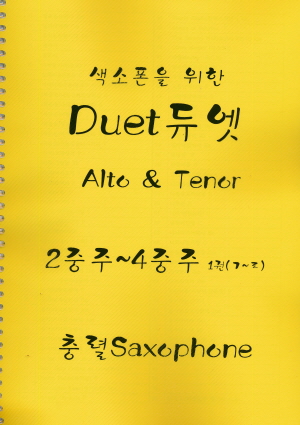 색소폰을 위한
Duet듀엣
Alto & Tenor
2중주~4중주 1권(ㄱ~ㄹ)
충렬Saxophone